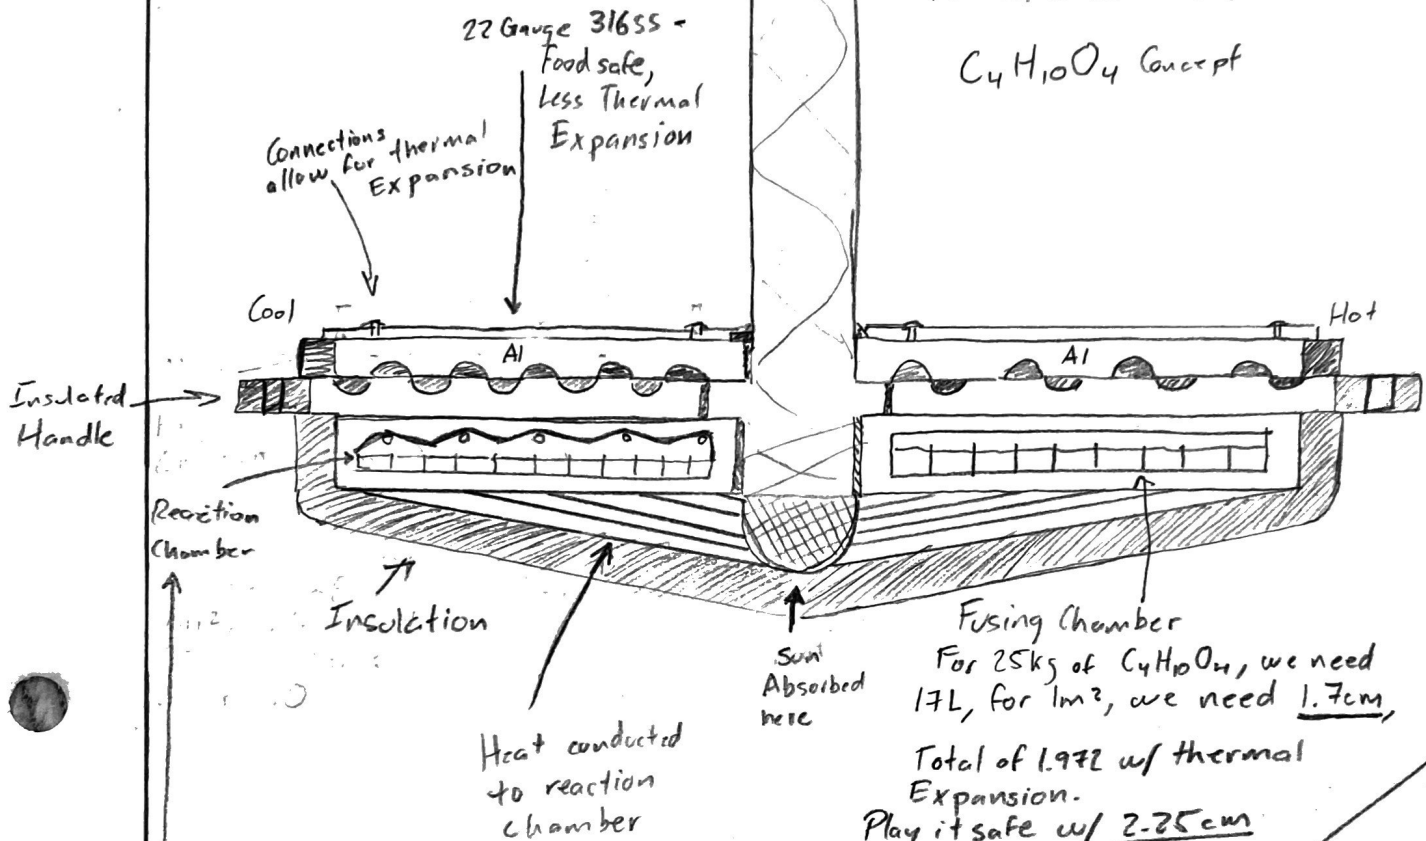 22 Gauge 316SS -
Food safe,
Less Thermal
Expansion
C4H10O4 Concept
Connections
allow for thermal
Expansion
Cool
Hot
Al
Al
Insulated
Handle
Reaction
Chamber
Insulation
Heat conducted
to reaction
chamber
Sun
Absorbed
here
Fusing Chamber
For 25kg of C4H10O4, we need
17L, for 1m², we need 1.7cm,
Total of 1.972 w/ thermal
Expansion.
Play it safe w/ 2.25cm